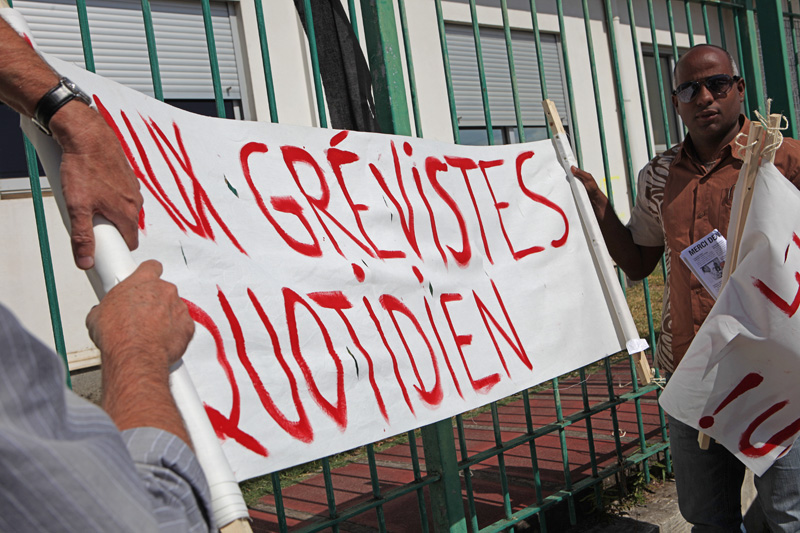 UX GRÉVISTES
QUOTIDIEN
MERCI DE
!